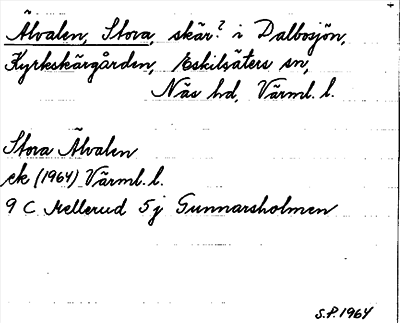 Älvalen, Stora, skär? i Dalbosjön,
Kyrkskärgården, Eskilsäters sn,
Näs hd, Värml. l.
Stora Älvalen
ek (1964) Värml. l.
9 C Mellerud 5 j Gunnarsholmen
S.P. 1964